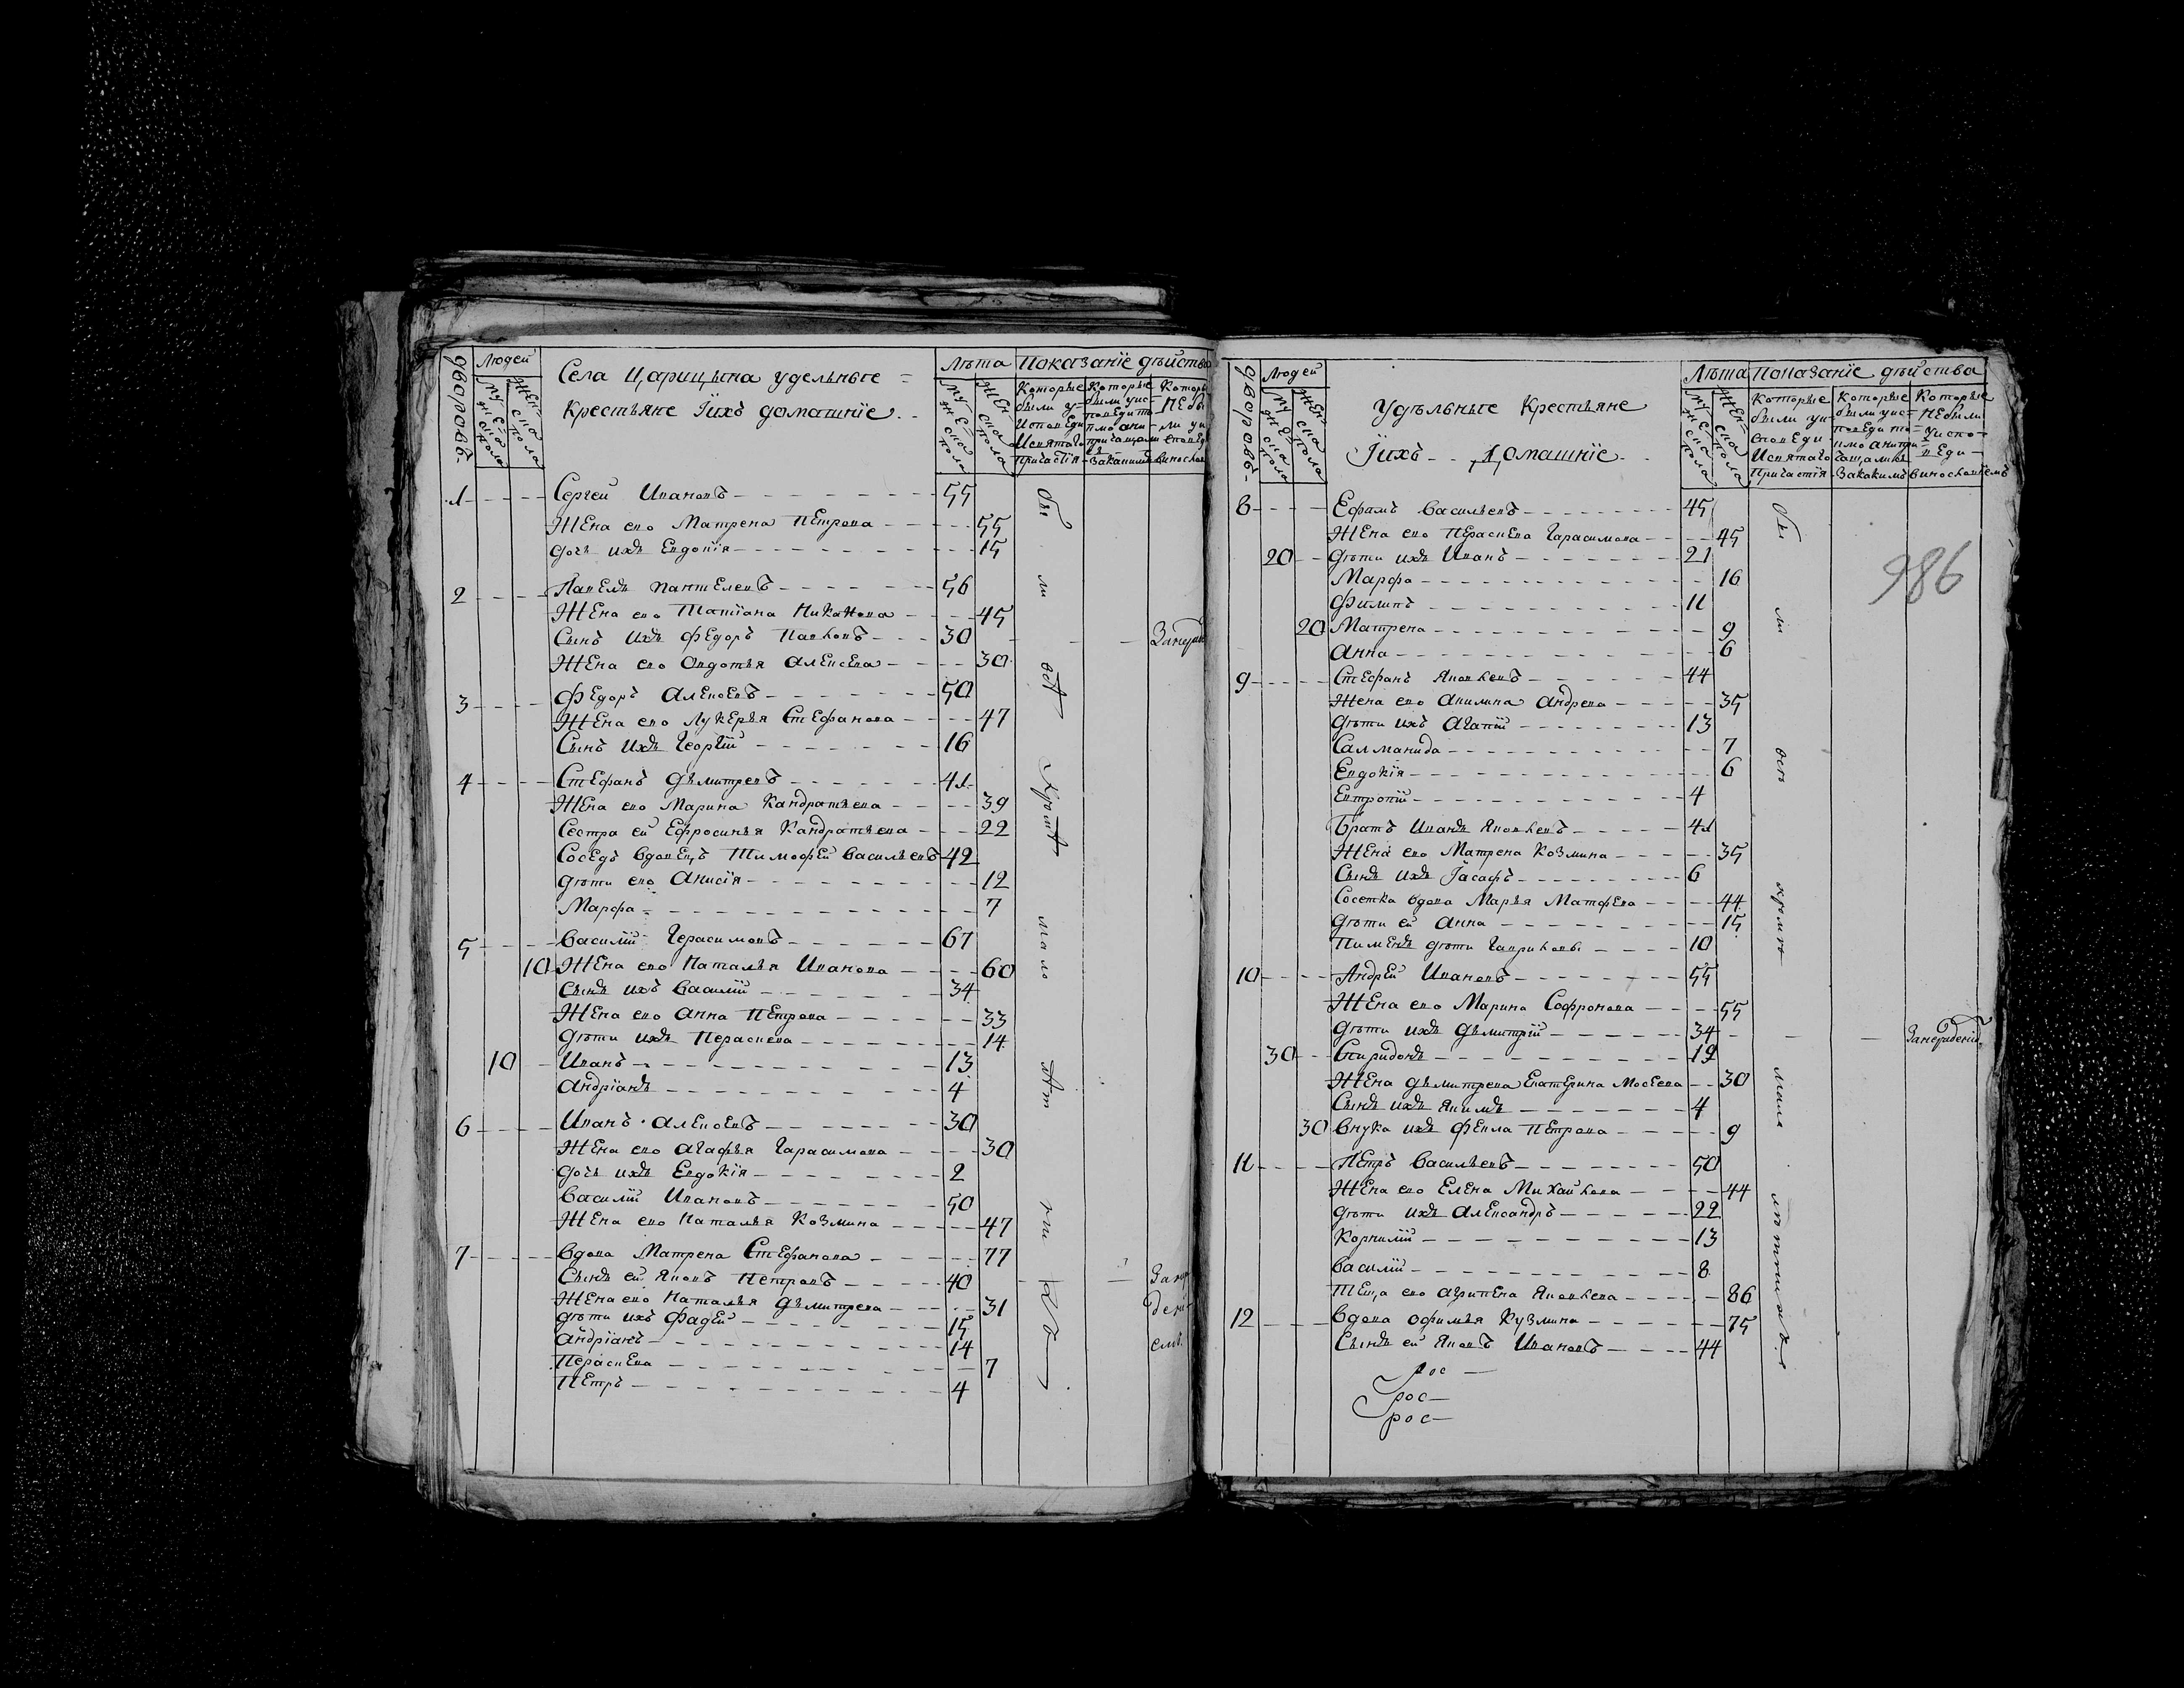 дворовъ.
Людей
Мужескаго пола
Женскаго пола
Села Царицына удельныѣ
Крестьяне Іихъ домашніе.
Лѣта
Мужеска пола
Женска пола
Показаніе дѣйства
Которые были у исповеди и святаго причастія
.1. Сергей Ивановъ 55
Жена его Матрена Петрова 55
дочь ихъ Евдокія 15
2 Павелъ Пантелевъ 56
Жена его Татіана Никанова 45
Сынъ ихъ Федоръ Павловъ 30
Жена его Овдотья Алексева 30
3 Федоръ Алексевъ 50
Жена его Лукерья Стефанова 47
Сынъ ихъ Георгій 16
4 Стефанъ Дьмитревъ 41
Жена его Марина Кандратьева 39
Сестра ей Ефросинья Кандратьева 22
Соседъ вдовецъ Тимофей Васильевъ 42
дѣти его Анисія 12
Марфа 7
5 Василій Герасимовъ 67
10 Жена его Наталья Иванова 60
Сынъ ихъ Василій 34
Жена его Анна Петрова 33
дѣти ихъ Пераскева 14
10 Иванъ 13
Андріанъ 4
6 Иванъ Алексевъ 30
Жена его Агафья Гарасимова 30
дочь ихъ Евдокія 2
Василій Ивановъ 50
Жена его Наталья Козмина 47
7 Вдова Матрена Стефанова 77
Сынъ ей Яковъ Петровъ 40
Жена его Наталья Дьмитрева 31
дѣти ихъ Фадей 15
Андріанъ 14
Пераскева 7
Петръ 4
дворовъ.
Людей
Мужескаго пола
Женска пола
Удѣльныѣ Крестьяне
Іихъ Домашніе
Лѣта
Мужеска пола
Женска пола
Показаніе дѣйства
Которые были у исповеди и святаго причастія
Которые не были у исповеди
986
8 Ефамъ Васильевъ 45
Жена его Пераскева Гарасимова 45
20 дѣти ихъ Иванъ 21
Марфа 16
Филипъ 11
20 Матрена 9
Анна 6
9 Стефанъ Яковлевъ 44
Жена его Акилина Андрева 35
дѣти ихъ Агапій 13
Салманида 7
Евдокія 6
Евтропій 4
Братъ Иванъ Яковлевъ 41
Жена его Матрена Козмина 35
Сынъ ихъ Іасафъ 6
Сосетка вдова Марья Матфева 44
дѣти ей Анна 15
Пименъ дѣти Гавриловы 10
10 Андрей Ивановъ 55
Жена его Марина Софронова 55
дѣти ихъ Дьмитрій 34
30 Спиридонъ 19
Жена Дьмитрева Екатерина Мосеева 30
Сынъ ихъ Якимъ 4
30 Внука ихъ Фекла Петрова 9
11 Петръ Васильевъ 50
Жена его Елена Михайлова 44
дѣти ихъ Александръ 22
Корнилій 13
Василій 8
Теща его Агрипена Яковлева 86
12 Вдова Офимья Кузмина 75
Сынъ ей Яковъ Ивановъ 44